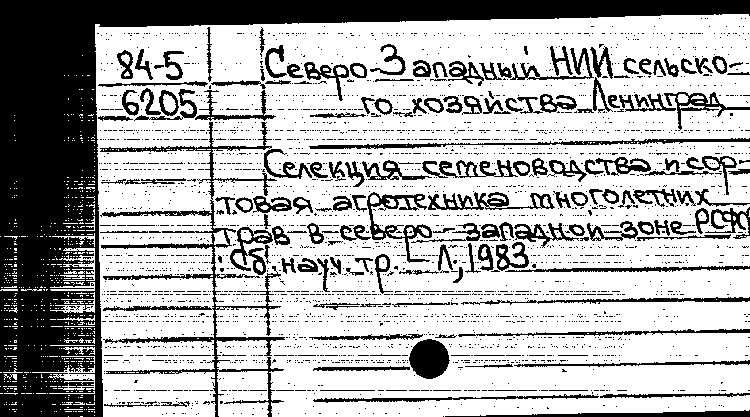 84-5 Северо-Западный НИИ сельско-
6205 го хозяйства Ленинград.
Селекция семеноводства и сор-
товая агротехника многолетних
трав в северо-западной зоне РСФ
: Сб. науч. тр. – Л., 1983.